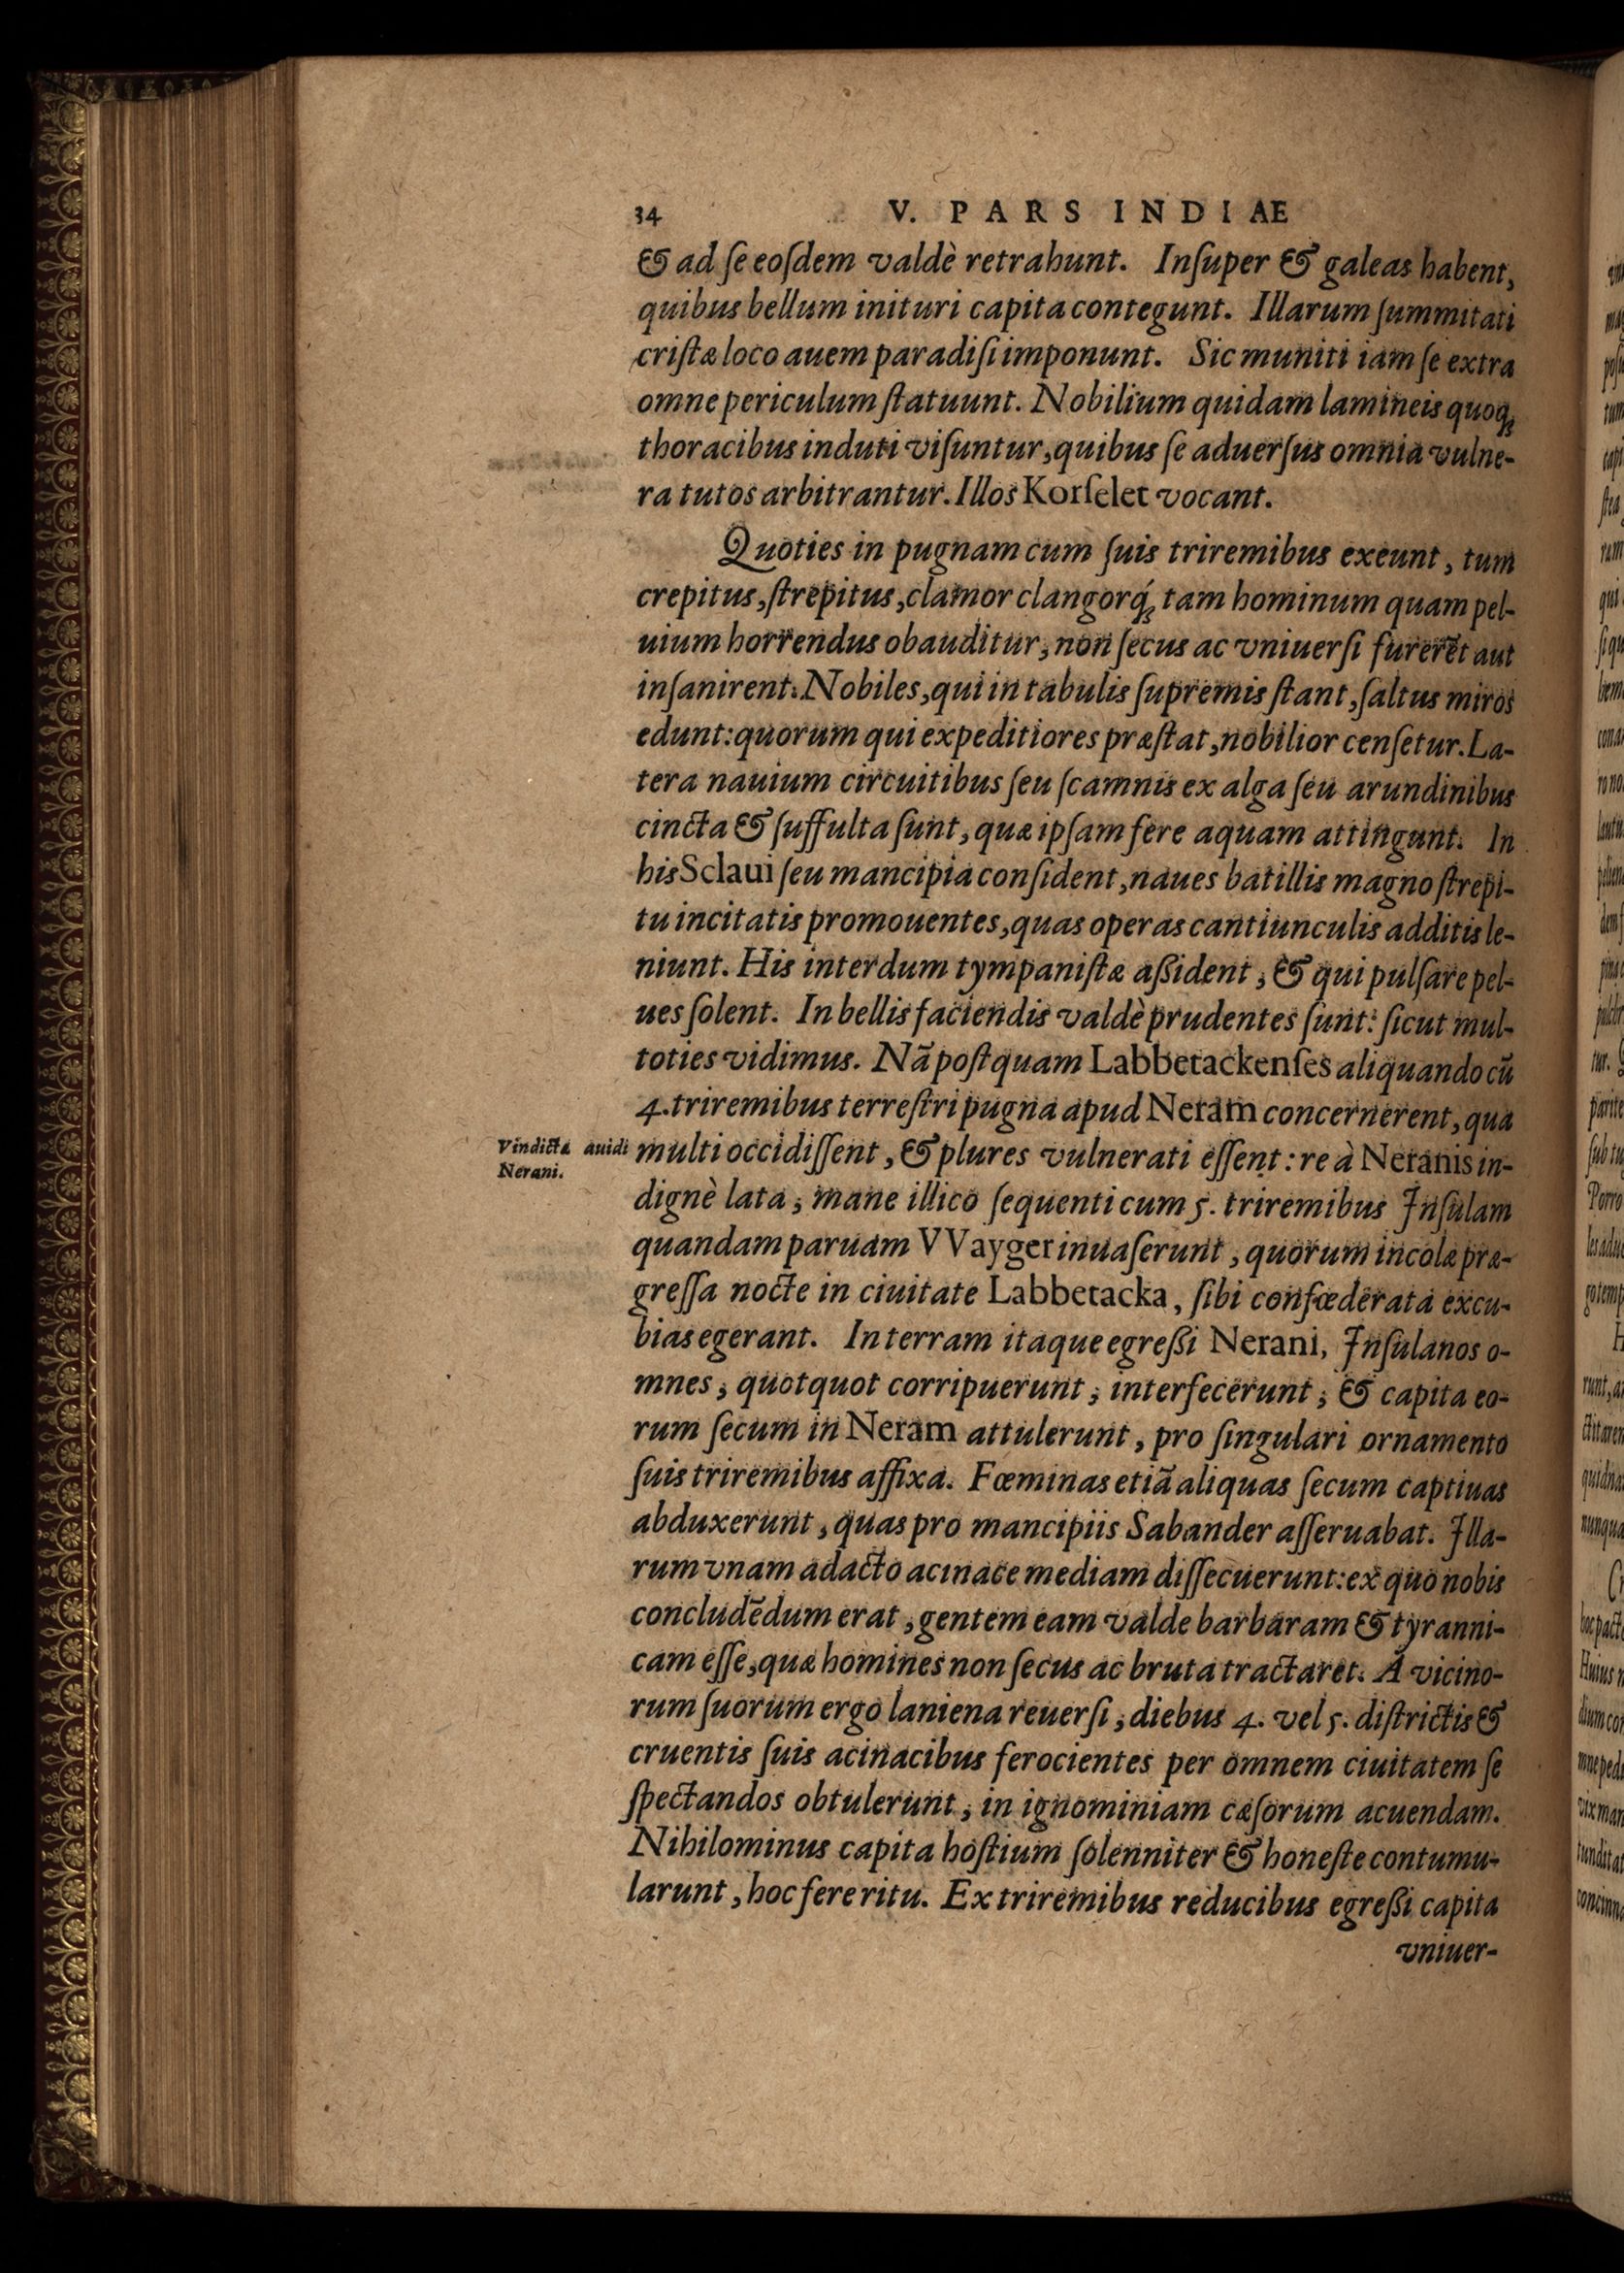 34 V. PARS INDIAE
& ad ſe eoſdem valdè retrahunt. Inſuper & galeas habent,
quibus bellum inituri capita contegunt. Illarum ſummitati
criſtæ loco auem paradiſi imponunt. Sic muniti iam ſe extra
omne periculum ſtatuunt. Nobilium quidam lamineis quoq;
thoracibus induti viſuntur, quibus ſe aduerſus omnia vulne-
ra tutos arbitrantur. Illos Korſelet vocant.
Quoties in pugnam cum ſuis triremibus exeunt, tum
crepitus, ſtrepitus, clamor clangorq́; tam hominum quam pel-
uium horrendus obauditur, non ſecus ac vniuerſi furerēt aut
inſanirent. Nobiles, qui in tabulis ſupremis ſtant, ſaltus miros
edunt: quorum qui expeditiores præſtat, nobilior cenſetur. La-
tera nauium circuitibus ſeu ſcamnis ex alga ſeu arundinibus
cincta & ſuffulta ſunt, quæ ipſam fere aquam attingunt. In
his Sclaui ſeu mancipia conſident, naues batillis magno ſtrepi-
tu incitatis promouentes, quas operas cantiunculis additis le-
niunt. His interdum tympaniſtæ aßident, & qui pulſare pel-
ues ſolent. In bellis faciendis valdè prudentes ſunt: ſicut mul-
toties vidimus. Nā poſtquam Labbetackenſes aliquando cū
4. triremibus terreſtri pugna apud Neram concernerent, qua
Vindicta auidi
Nerani.
multi occidiſſent, & plures vulnerati eſſent: re à Neranis in-
dignè lata, mane illico ſequenti cum 5. triremibus Inſulam
quandam paruam VVayger inuaſerunt, quorum incolæ præ-
greſſa nocte in ciuitate Labbetacka, ſibi confœderata excu-
bias egerant. In terram itaque egreßi Nerani, Inſulanos o-
mnes, quotquot corripuerunt, interfecerunt, & capita eo-
rum ſecum in Neram attulerunt, pro ſingulari ornamento
ſuis triremibus affixa. Fœminas etiā aliquas ſecum captiuas
abduxerunt, quas pro mancipiis Sabander aſſeruabat. Illa-
rum vnam adacto acinace mediam diſſecuerunt: ex quo nobis
concludēdum erat, gentem eam valde barbaram & tyranni-
cam eſſe, quæ homines non ſecus ac bruta tractaret. A vicino-
rum ſuorum ergo laniena reuerſi, diebus 4. vel 5. diſtrictis &
cruentis ſuis acinacibus ferocientes per omnem ciuitatem ſe
ſpectandos obtulerunt, in ignominiam cæſorum acuendam.
Nihilominus capita hoſtium ſolenniter & honeſte contumu-
larunt, hoc fere ritu. Ex triremibus reducibus egreßi capita
vniuer-